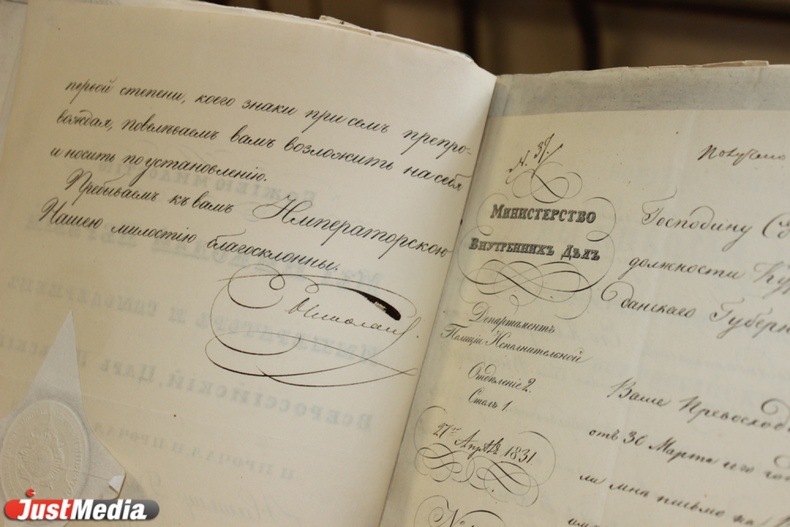 первой степени, коего знаки при семъ препро-
вождая, повелѣваемъ вамъ возложить на себя
и носить по установленію.
Пребываемъ къ вамъ Императорскою
Нашею милостію благосклонны.
Николай
МИНИСТЕРСТВО
ВНУТРЕННИХЪ ДѢЛЪ
Департаментъ
Полиціи Исполнительной
Отдѣленіе 2.
Столъ 1.
27го Апрѣля 1831.
Получено
Господину
должности
Ваше Превосходи
отъ 30 Марта сего
ли мнѣ письмо на
ВСЕРОССІЙСКІЙ, ЦАРЬ
И ПРОЧАЯ И ПРОЧАЯ
JustMedia